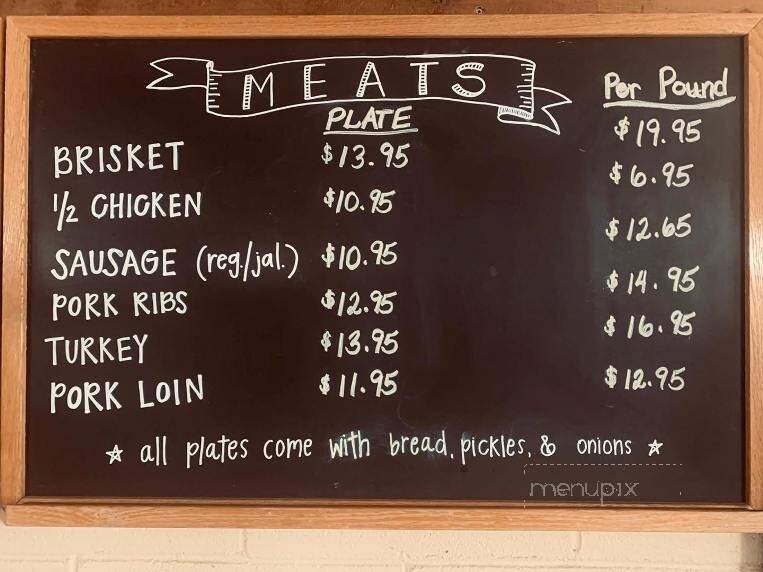 MEATS
PLATE Per Pound
BRISKET $13.95 $19.95
1/2 CHICKEN $10.95 $6.95
SAUSAGE (reg./jal.) $10.95 $12.65
PORK RIBS $12.95 $14.95
TURKEY $13.95 $16.95
PORK LOIN $11.95 $12.95
☆ all plates come with bread, pickles, & onions ☆
menupix